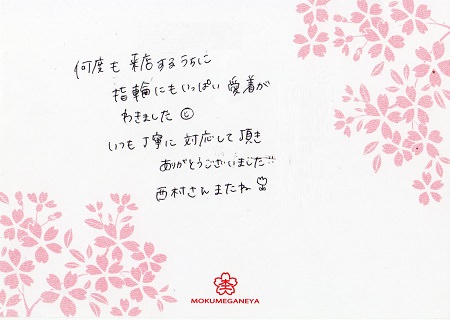 何度も来店するうちに
指輪にもいっぱい愛着が
わきました
いつも丁寧に対応して頂き
ありがとうございました!!
西村さんまたね
MOKUMEGANEYA